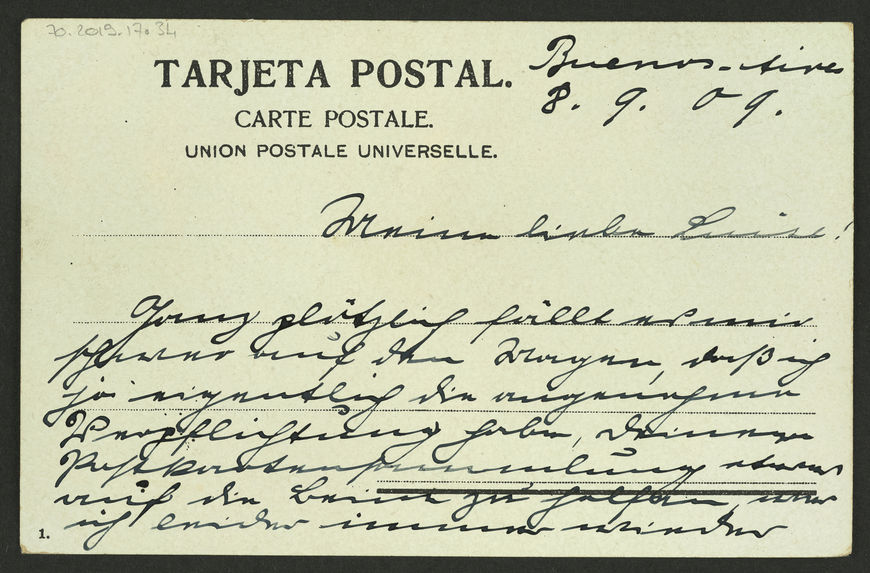 70.2019.17.34
TARJETA POSTAL.
CARTE POSTALE.
UNION POSTALE UNIVERSELLE.
Buenos-Aires
8. 9. 09.
Meine liebe Luise!
Ganz plötzlich fällt es mir
schwer auf den Magen, daß ich
ja eigentlich die angenehme
Verpflichtung habe, Deiner
Postkartensammlung etwas
auf die Beine zu helfen, was
ich leider immer wieder
1.